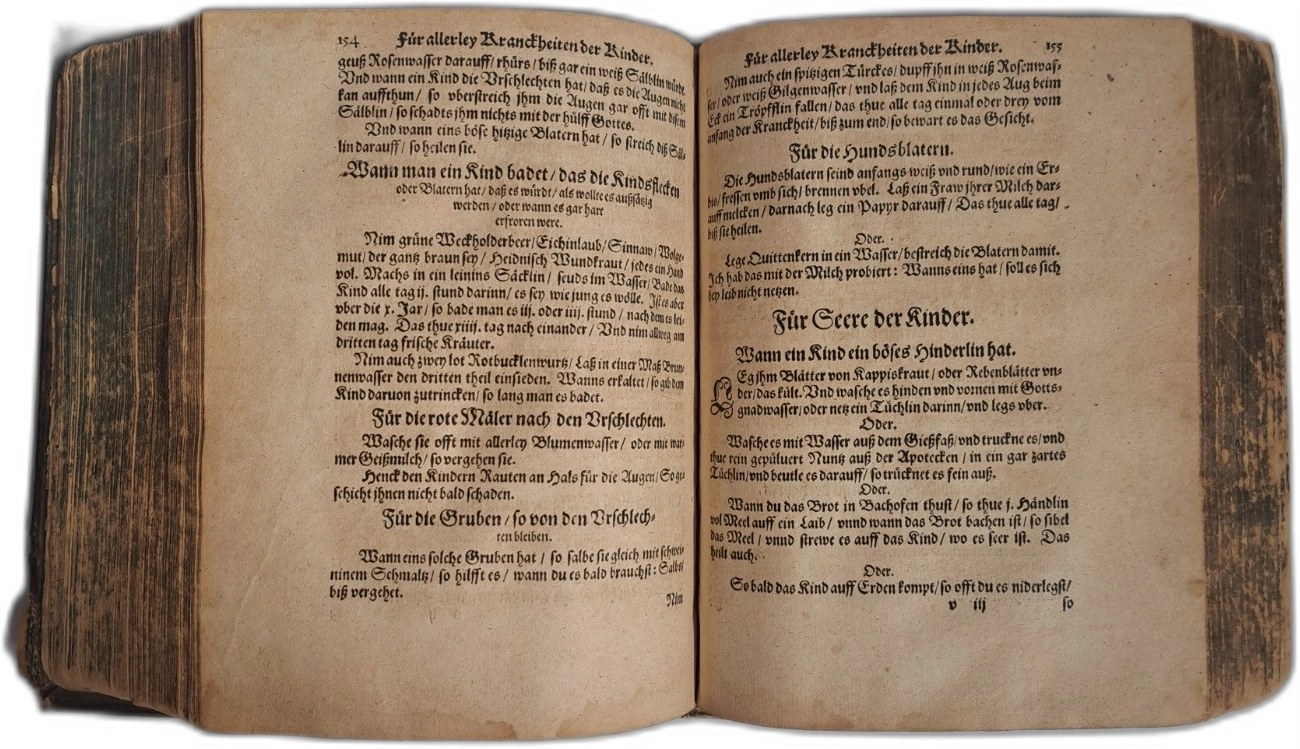 154 Für allerley Kranckheiten der Kinder.
geuß Rosenwasser darauff/ rhürs/ biß gar ein weiß Sälblin würdt.
Vnd wann ein Kind die Vrschlechten hat/ daß es die Augen nicht
kan auffthun/ so vberstreich jhm die Augen gar offt mit disem
Sälblin/ so schadts jhm nichts mit der hülff Gottes.
Vnd wann eins böse hitzige Blatern hat/ so streich diß Säl-
lin darauff/ so heilen sie.
Wann man ein Kind badet/ das die Kindsflecken
oder Blatern hat/ daß es würdt/ als wollte es außsätzig
werden/ oder wann es gar hart
erfroren were.
Nim grüne Weckholderbeer/ Eichinlaub/ Sinnaw/ Wolge-
mut/ der gantz braun sey/ Heidnisch Wundkraut/ jedes ein Hand
vol. Machs in ein leinins Säcklin/ seuds im Wasser/ Bade das
Kind alle tag ij. stund darinn/ es sey wie jung es wölle. Ist es aber
vber die x. Jar/ so bade man es iij. oder iiij. stund/ nach dem es lei-
den mag. Das thue xiiij. tag nach einander/ Vnd nim allweg am
dritten tag frische Kräuter.
Nim auch zwey lot Rotbucklenwurtz/ Laß in einer Maß Brun-
nenwasser den dritten theil einsieden. Wanns erkaltet/ so gib dem
Kind daruon zutrincken/ so lang man es badet.
Für die rote Mäler nach den Vrschlechten.
Wasche sie offt mit allerley Blumenwasser/ oder mit war-
mer Geißmilch/ so vergehen sie.
Henck den Kindern Rauten an Hals für die Augen/ So ge-
schicht jhnen nicht bald schaden.
Für die Gruben/ so von den Vrschlech-
ten bleiben.
Wann eins solche Gruben hat/ so salbe sie gleich mit schwei-
ninem Schmaltz/ so hilfft es/ wann du es bald brauchst: Salbs/
biß vergehet.
Nim
Für allerley Kranckheiten der Kinder. 155
Nim auch ein spitzigen Türckes/ dupff jhn in weiß Rosenwas-
ser/ oder weiß Gilgenwasser/ vnd laß dem Kind in jedes Aug beim
Eck ein Tröpfflin fallen/ das thue alle tag einmal oder drey vom
anfang der Kranckheit/ biß zum end/ so bewart es das Gesicht.
Für die Hundsblatern.
Die Hundsblatern seind anfangs weiß vnd rund/ wie ein Er-
bis/ fressen vmb sich/ brennen vbel. Laß ein Fraw jhrer Milch dar-
auff melcken/ darnach leg ein Papyr darauff/ Das thue alle tag/
biß sie heilen.
Oder.
Lege Quittenkern in ein Wasser/ bestreich die Blatern damit.
Ich hab das mit der Milch probiert: Wanns eins hat/ soll es sich
bey leib nicht netzen.
Für Seere der Kinder.
Wann ein Kind ein böses Hinderlin hat.
LEg jhm Blätter von Kappiskraut/ oder Rebenblätter vn-
der/ das kült. Vnd wasche es hinden vnd vornen mit Gotts-
gnadwasser/ oder netz ein Tüchlin darinn/ vnd legs vber.
Oder.
Wasche es mit Wasser auß dem Gießfaß/ vnd truckne es/ vnd
thue rein gepüluert Nuntz auß der Apotecken/ in ein gar zartes
Tüchlin/ vnd beutle es darauff/ so trücknet es fein auß.
Oder.
Wann du das Brot in Bachofen thust/ so thue j. Händlin
vol Meel auff ein Laib/ vnnd wann das Brot bachen ist/ so sibel
das Meel/ vnnd strewe es auff das Kind/ wo es seer ist. Das
heilt auch.
Oder.
So bald das Kind auff Erden kompt/ so offt du es niderlegst/
v iij so